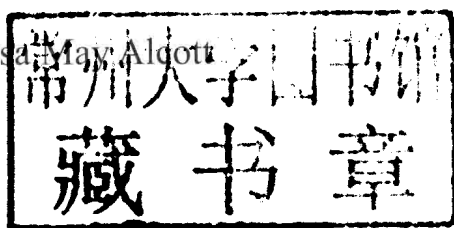 sa May Alcott
常州大学图书馆
藏书章